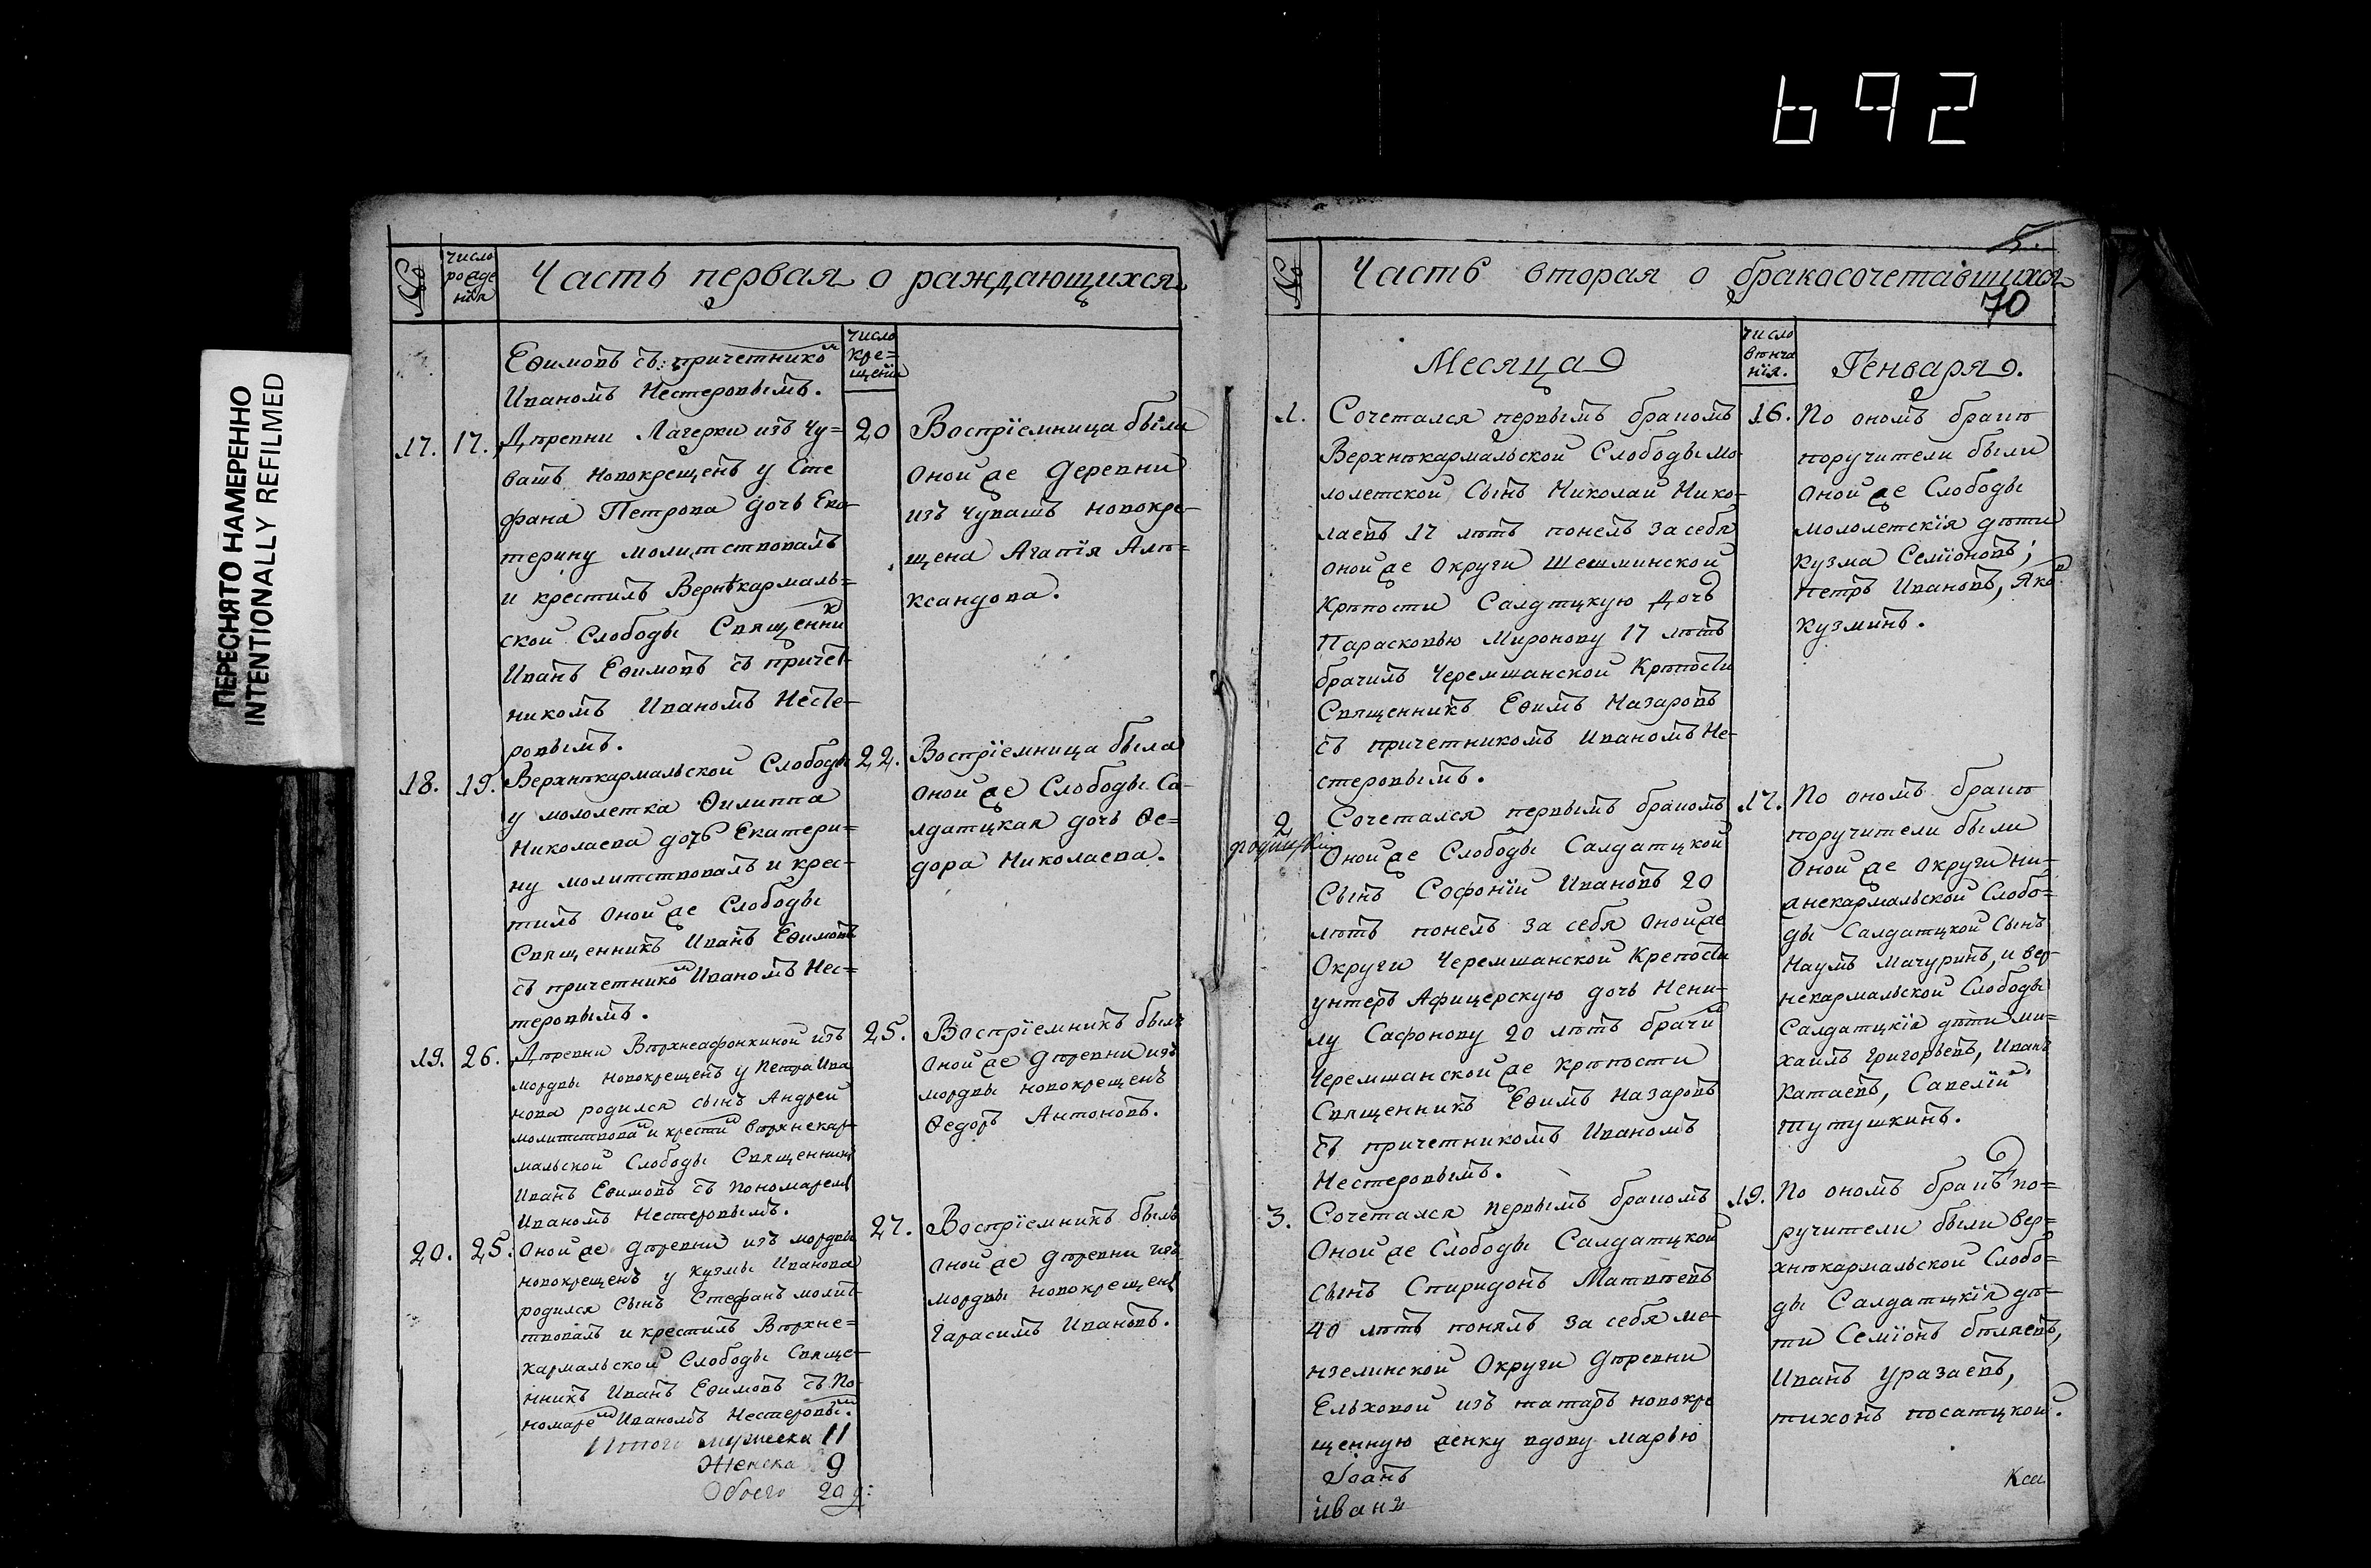 692
ПЕРЕСНЯТО НАМЕРЕННО
INTENTIONALLY REFILMED
№
число
рожде
нїя
Часть первая о раждающихся
Еѳимовъ съ причетнико͠м
Иваномъ Нестеровымъ.
число
кре=
щенїя
17.
17.
Дѣревни Лагерки изъ Чу=
вашъ новокрещенъ у Сте
фана Петрова дочь Ека-
терину молитствовалъ
и крестилъ Вернѣкармаль=
ской Слободы Священни͠к
Иванъ Еѳимовъ съ причет-
никомъ Иваномъ Несте-
ровымъ.
20
Воспрїемница была
оной же деревни
изъ чувашъ новокре-
щена Агапїя Алѣ=
ксандова.
18.
19.
Верхнѣкармальской Слободы
у мололетка Ѳилиппа
Николаева дочь Екатери=
ну молитствовалъ и крес-
тилъ оной же Слободы
Священникъ Иванъ Еѳимовъ
съ причетнико͠м Иваномъ Нес=
теровымъ.
22.
Воспрїемница была
оной же Слободы Са-
лдатцкая дочь Ѳе=
дора Николаева.
19.
26.
Дѣревни Вѣрхнеафонкиной изъ
мордвы новокрещенъ у Петра Ива
нова родился сынъ Андрей
молитствова͠л и крести͠л вѣрхнекар-
мальской Слободы Священникъ
Иванъ Еѳимовъ съ пономаремъ
Иваномъ Нестеровымъ.
25.
Воспрїемникъ былъ
оной же дѣревни изъ
мордвы новокрещенъ
Ѳедоръ Антоновъ.
20.
25.
Оной же дѣревни изъ мордвы
новокрещенъ у Кузмы Иванова
родился сынъ Стефанъ молит-
твовалъ и крестилъ Вѣрхне=
кармальской Слободы Свяще-
нникъ Иванъ Еѳимовъ съ По-
номаре͠м Иваномъ Нестеровы͠м.
27.
Воспрїемникъ былъ
оной же дѣревни изъ
мордвы новокрещенъ
Гарасимъ Ивановъ.
Итого мужеска 11
Женска 9
Обоего 20
5.
№
Часть вторая о бракосочетавшихся
70
Месяца
число
вѣнча
нїя.
Генваря.
1.
Сочетался первымъ бракомъ
Верхнѣкармальской Слободы мо-
лолетской Сынъ Николай Нико-
лаевъ 17 лѣтъ понелъ за себя
оной же Округи Шешминской
Крѣпости Салдатцкую Дочь
Парасковью Миронову 17 лѣтъ
брачилъ Черемшанской Крѣпости
Священникъ Еѳимъ Назаровъ
съ причетникомъ Иваномъ Не-
стеровымъ.
16.
По ономъ бракѣ
поручители были
оной же Слободы
мололетскїя дѣти
Кузма Семїоновъ;
петръ Ивановъ, Яко͠в
Кузминъ.
2
Сочетался первымъ бракомъ
Оной же Слободы Салдатцкой
Сынъ Софонїй Ивановъ 20
лѣтъ понелъ за себя оной же
Округи Черемшанской Крепости
унтеръ Афицерскую дочь Нени-
лу Сафонову 20 лѣтъ брачи͠л
Черемшанской же Крѣпости
Священникъ Еѳимъ Назаровъ
съ причетникомъ Иваномъ
Нестеровымъ.
17.
По ономъ бракѣ
поручители были
оной же округи ни-
жнекармальской Слобо=
ды Салдатцкой Сынъ
Наумъ Мачуринъ, и вер-
некармальской Слободы
Салдатцкїя дѣти ми=
хаилъ Григорьевъ, Иванъ
Катаевъ, Савелїй
тутушкинъ.
3.
Сочетался первымъ бракомъ
Оной же Слободы Салдатцкой
Сынъ Спиридонъ Матвѣевъ
40 лѣтъ понялъ за себя ме-
нзелинской Округи Дѣревни
Ельховой изъ татаръ новокре
щенную женку вдову Марью
Иванъ
19.
По ономъ бракѣ по=
ручители были Вер=
хнѣкармальской Слобо-
ды Салдатцкїя дѣ-
ти Семїонъ бѣляевъ,
Иванъ Уразаевъ,
тихонъ посатцкой.